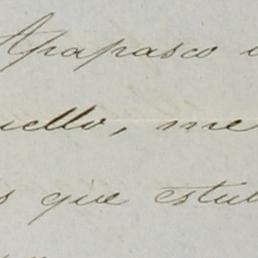 Apapasco
uello, me
s que estub